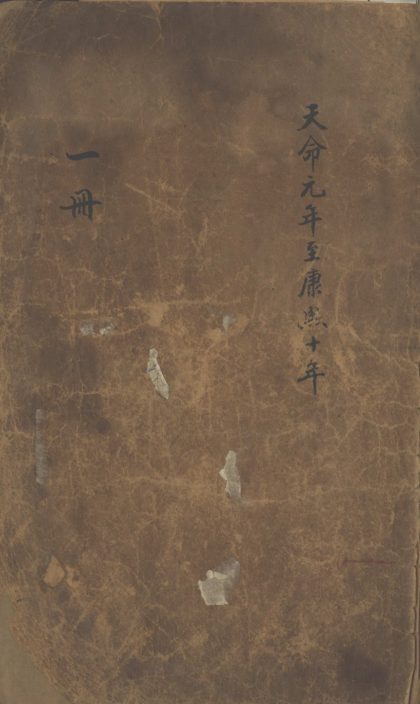 天命元年至康熙十年
一冊